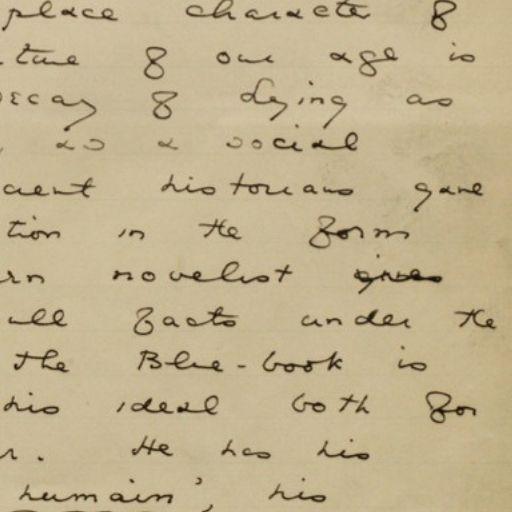 place character of
ture of our age is
decay of Lying as
, as a social
cient historians gave
tion in the form
rn novelist gives
ull facts under the
the Blue-book is
his ideal both for
r. He has his
humain', his